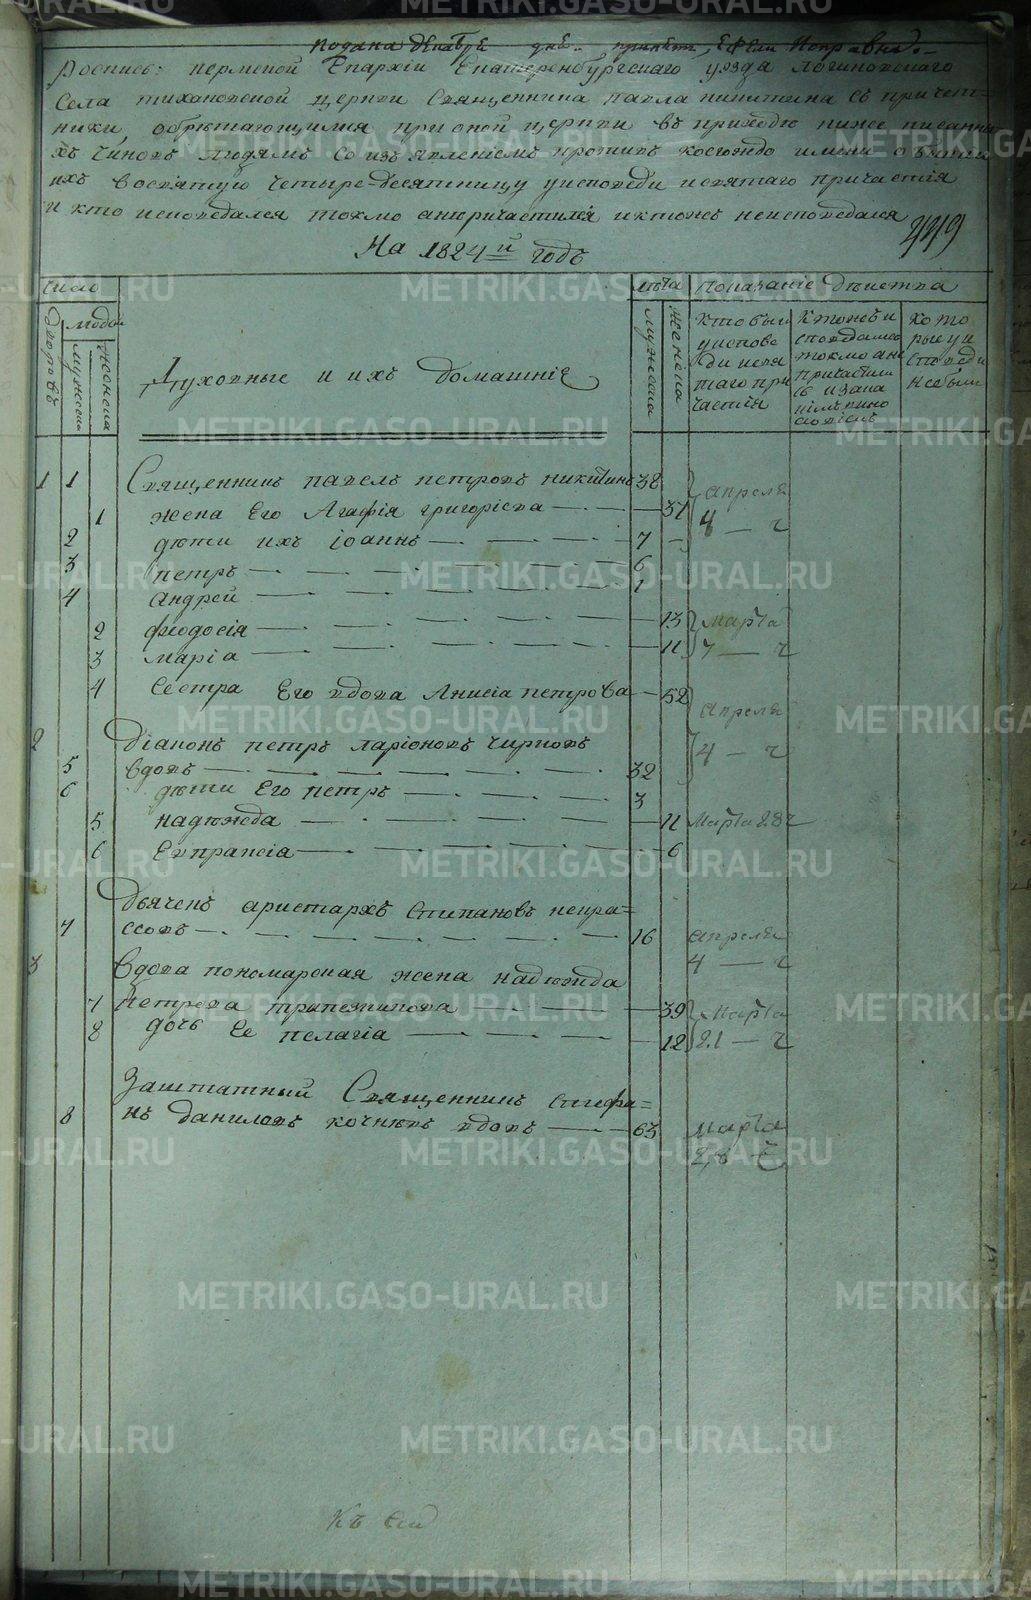 Подана декабрѣ дне. принята, если исправна.
Роспись: пермской Епархiи Екатеренбургскаго уезда логиновскаго
Села тихановской церкви Священника павла никитина съ причет=
ники, обрѣтающимися при оной церкви въ приходѣ ниже писанны
хъ чиновъ людямъ со изъявленiемъ противъ коегождо имени о бытiи
ихъ во святую четыре-десятницу уисповеди исвятаго причастiя
и кто исповедался токмо анепричастился иктожъ неисповедался
449
На 1824й годъ
число
дворовъ
людей
мужеска
женска
Духовные и ихъ домашнiе
лѣта
мужеска
женска
Показанiе дѣиства
Кто были уисповеди исвятаго причастiя
Ктожъ исповедались токмо анепричастились
Которыеуисповеди небыли
1 1 Священникъ павелъ петровъ никитинъ 38 Апреля
1 жена Его Агафiя григорiева — 37 4 — ч
2 дѣти ихъ iоаннъ — 7
3 петръ — 6
4 Андрей — 1
2 феодосiя — 13 Марта
3 марiа — 11 7 — ч
4 Сестра Его вдова Анисiа петрова — 52 Апреля
2 Дiаконъ петръ ларiоновъ Чирковъ 4 — ч
5 вдовъ — 32
6 дѣти Его петръ — 3
5 надѣжда — 11 Марта 28 ч
6 Евпраксiа — 6
Дьячекъ аристархъ Стипановъ некра=
7 ссовъ — 16 апреля
4 — ч
3 Вдова пономарская жена надѣжда
7 Петрова трапезникова — 39 Марта
8 дочь Ее пелагiа — 12 21 — ч
Заштатный Священникъ стефа=
8 нъ даниловъ кочневъ вдовъ — 63 Марта
28 ч
METRIKI.GASO-URAL.RU